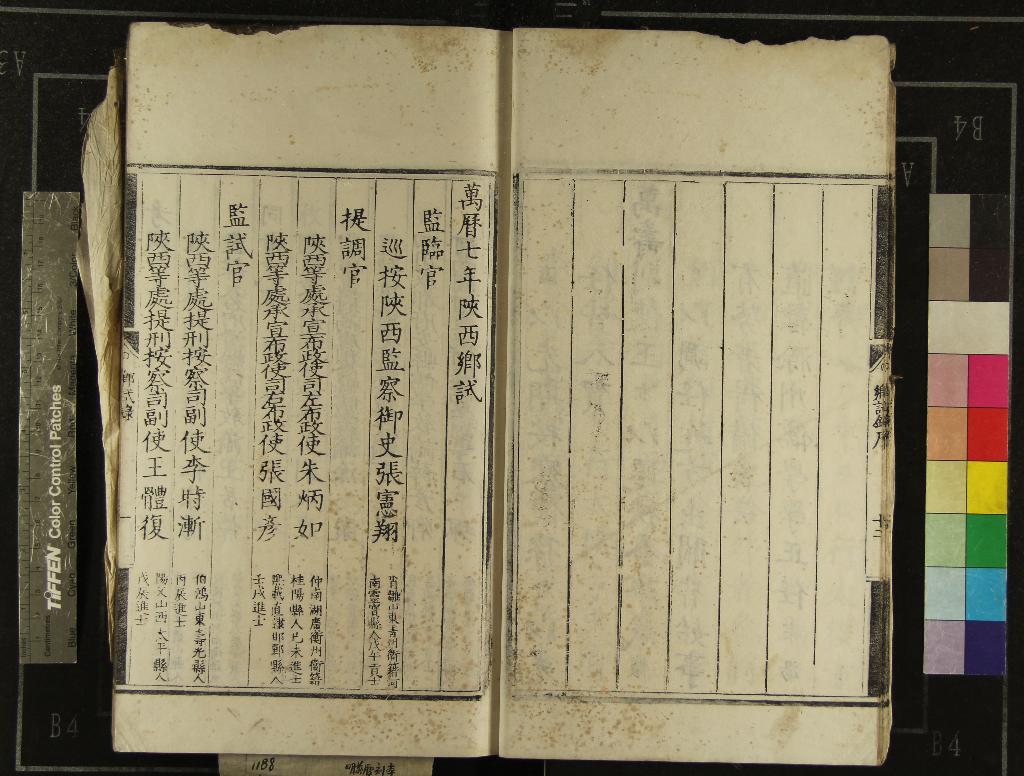 鄉試錄序
十二
萬曆七年陝西鄉試
監臨官
巡按陝西監察御史張憲翔
肖離山東青州衛籍河
南靈寶縣人戊午貢士
提調官
陝西等處承宣布政使司左布政使朱炳如
仲南湖廣衡州衛籍
桂陽縣人己未進士
陝西等處承宣布政使司右布政使張國彥
熙載直隸邯鄲縣人
壬戌進士
監試官
陝西等處提刑按察司副使李時漸
伯鴻山東壽光縣人
丙辰進士
陝西等處提刑按察司副使王體復
陽父山西太平縣人
戊辰進士
鄉試錄
一
TIFFEN Color Control Patches
Blue
Cyan
Green
Yellow
Red
Magenta
White
Centimetres
Inches
B4
B4
B4
B4
A3
A
1188